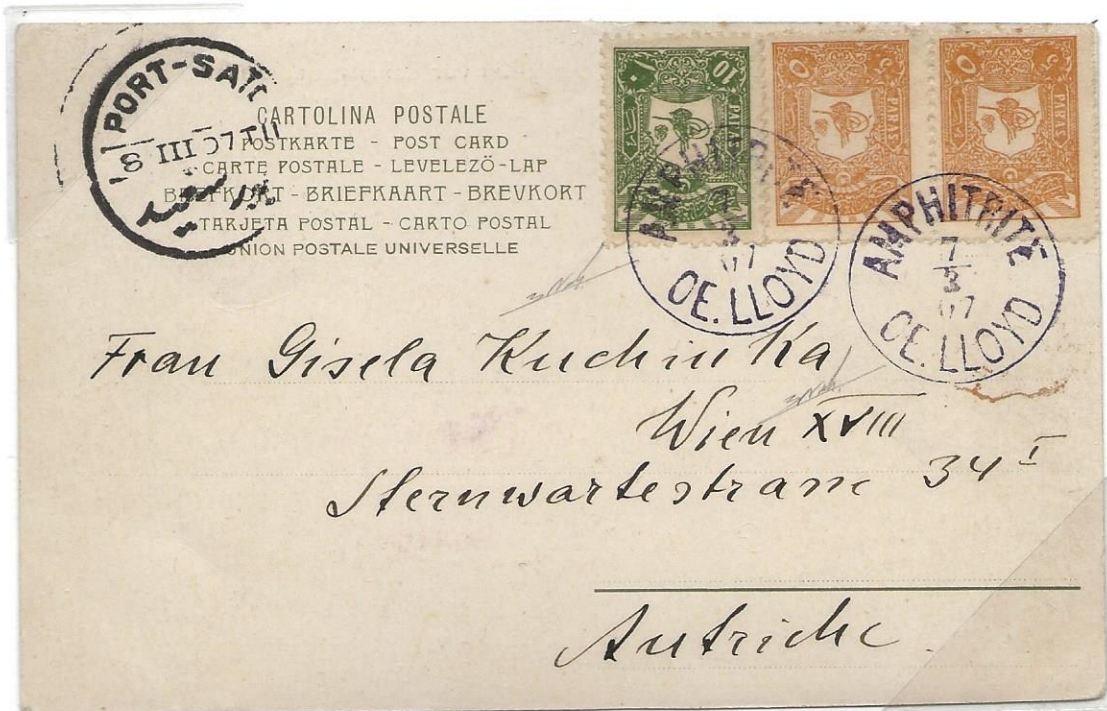 PORT-SAID
8 III 07
CARTOLINA POSTALE
POSTKARTE - POST CARD
CARTE POSTALE - LEVELEZÖ-LAP
BREFKORT - BRIEFKAART - BREVKORT
TARJETA POSTAL - CARTO POSTAL
UNION POSTALE UNIVERSELLE
10 PARAS
5 PARAS
5 PARAS
AMPHITRITE
7
3
07
OE. LLOYD
AMPHITRITE
7
3
07
OE. LLOYD
Frau Gisela Kuchinka
Wien XVIII
Sternwartestrasse 34 I
Autriche.